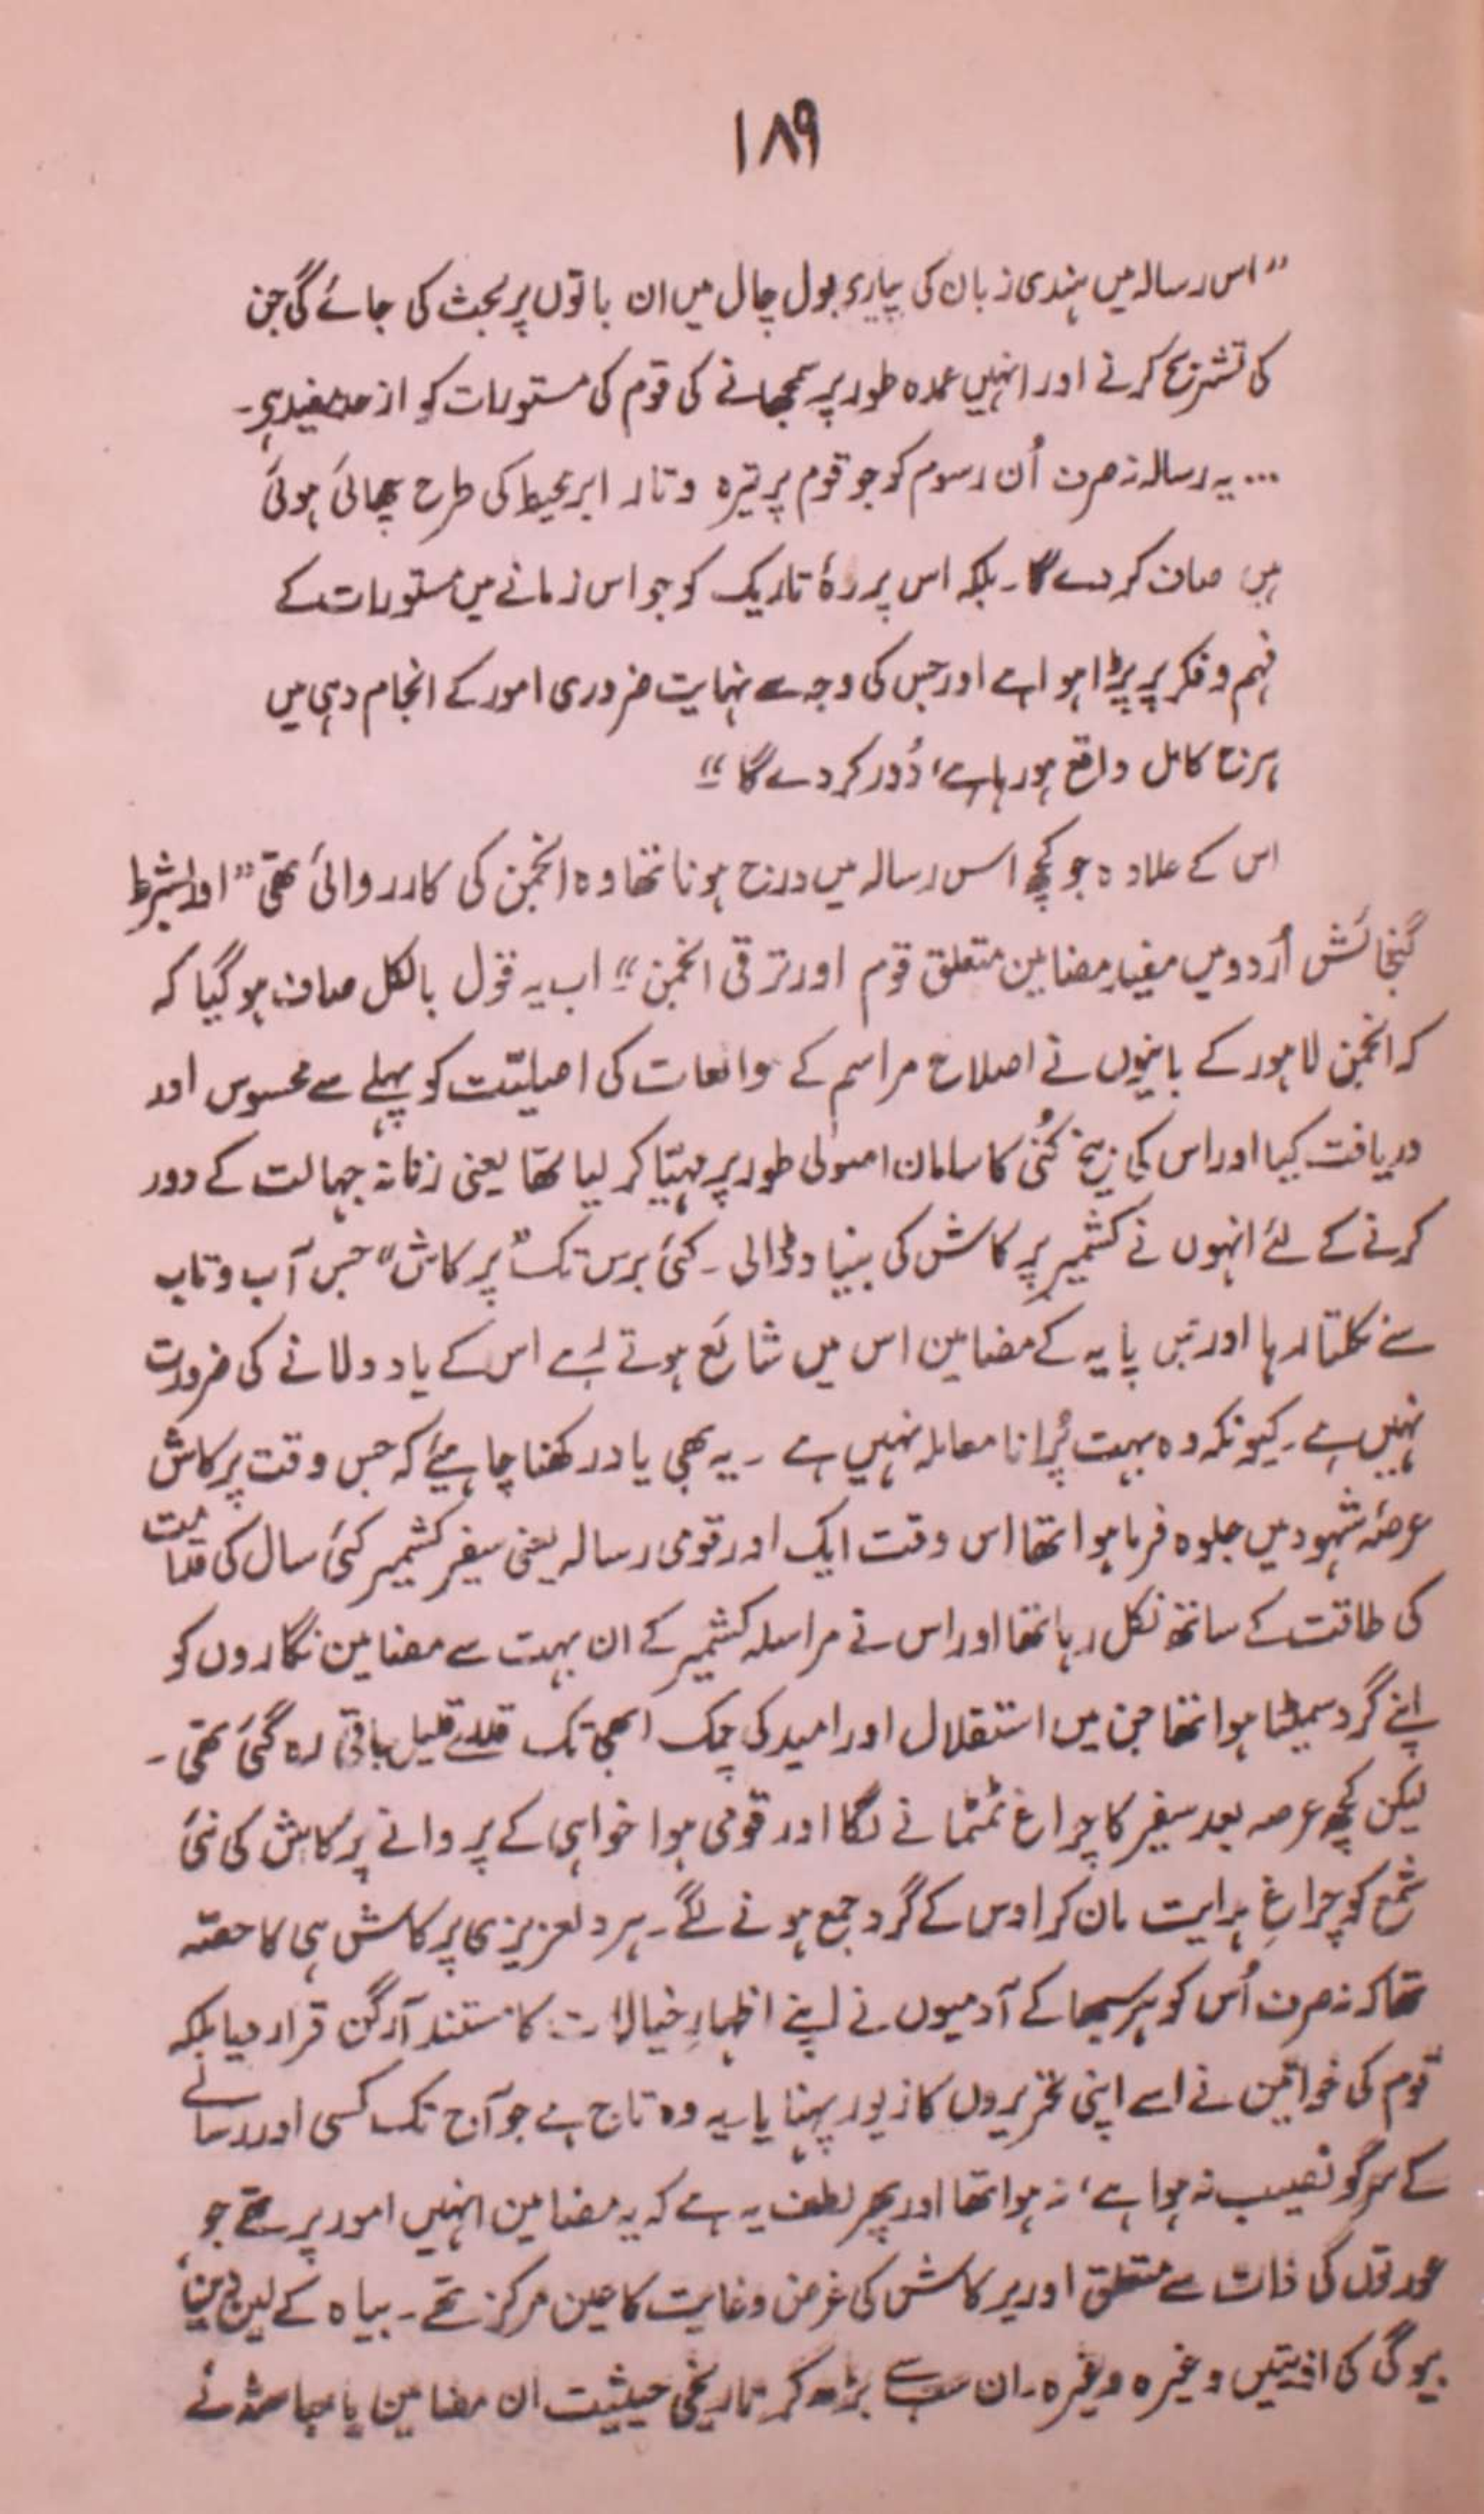 ۱۸۹
”اس رسالہ میں ہندی زبان کی پیاری بول چال میں ان باتوں پر بحث کی جائے گی جن
کی تشریح کرنے اور انہیں عمدہ طور پر سمجھانے کی قوم کی مستورات کو از حد مفید ہے۔
... یہ رسالہ نہ صرف اُن رسوم کو جو قوم پر تیرہ و تار ابر محیط کی طرح چھائی ہوئی
ہیں صاف کر دے گا۔ بلکہ اس پردۂ تاریک کو جو اس زمانے میں مستورات کے
فہم و فکر پر پڑا ہوا ہے اور جس کی وجہ سے نہایت ضروری امور کے انجام دہی میں
ہرج کامل واقع ہو رہا ہے، دُور کر دے گا“
اس کے علاوہ جو کچھ اس رسالہ میں درج ہونا تھا وہ انجمن کی کارروائی تھی ”اور بشرط
گنجائش اُردو میں مفید مضامین متعلق قوم اور ترقی انجمن“ اب یہ قول بالکل صاف ہو گیا کہ
کہ انجمن لاہور کے بانیوں نے اصلاح مراسم کے واقعات کی اصلیّت کو پہلے سے محسوس اور
دریافت کیا اور اس کی بیخ کُنی کا سامان اصولی طور پر مہیّا کر لیا تھا یعنی زنانہ جہالت کے دور
کرنے کے لئے انہوں نے کشمیر پرکاش کی بنیاد ڈالی۔ کئی برس تک ”پرکاش“ جس آب و تاب
سے نکلتا رہا اور جس پایہ کے مضامین اس میں شائع ہوتے رہے اس کے یاد دلانے کی ضرورت
نہیں ہے۔ کیونکہ وہ بہت پُرانا معاملہ نہیں ہے ۔ یہ بھی یاد رکھنا چاہیئے کہ جس وقت پرکاش
عرصۂ شہود میں جلوہ فرما ہوا تھا اس وقت ایک اور قومی رسالہ یعنی سفیر کشمیر کئی سال کی قدامت
کی طاقت کے ساتھ نکل رہا تھا اور اس نے مراسلہ کشمیر کے ان بہت سے مضامین نگاروں کو
اپنے گرد سمیٹا ہوا تھا جن میں استقلال اور امید کی چمک ابھی تک قدرے قلیل باقی رہ گئی تھی ۔
لیکن کچھ عرصہ بعد سفیر کا چراغ ٹمٹمانے لگا اور قومی ہوا خواہی کے پروانے پرکاش کی نئی
شمع کو چراغِ ہدایت مان کر اوس کے گرد جمع ہونے لگے۔ ہر دلعزیزی پرکاش ہی کا حصّہ
تھا کہ نہ صرف اُس کو ہر سبھا کے آدمیوں نے اپنے اظہارِ خیالات کا مستند آرگن قرار دیا بلکہ
قوم کی خواتین نے اسے اپنی تحریروں کا زیور پہنایا یہ وہ تاج ہے جو آج تک کسی اور رسالے
کے سر کو نصیب نہ ہوا ہے، نہ ہوا تھا اور پھر لطف یہ ہے کہ یہ مضامین انہیں امور پر تھے جو
عورتوں کی ذات سے متعلق اور پرکاش کی غرض و غایت کا عین مرکز تھے۔ بیاہ کے لین دین،
بیوگی کی اذیتیں وغیرہ وغیرہ۔ ان سب سے بڑھ کر تاریخی حیثیت ان مضامین یا مباحثہ نے